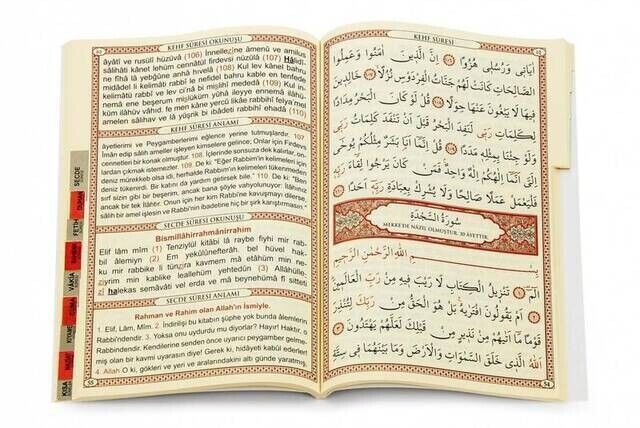 KEHF SÛRESİ OKUNUŞU
âyâtî ve rusulî hüzüvâ (106) İnnellezîne âmenû ve amilus
sâlihâti kânet lehüm cennâtül firdevsi nüzülâ (107) Hâlidî-
ne fîhâ lâ yebğûne anhâ hivelâ (108) Kul lev kânel bahru
midâdel li kelimâti rabbî le nefidel bahru kable en tenfede
kelimâtü rabbî ve lev ci'nâ bi mislihî mededâ (109) Kul in-
nemâ ene beşerum mislüküm yûhâ ileyye ennemâ ilâhü-
küm ilâhüv vâhid, fe men kâne yercû likâe rabbihî felya'mel
amelen sâlihav ve lâ yüşrik bi ibâdeti rabbihî ehadâ (110)
KEHF SÛRESİ ANLAMI
âyetlerimi ve Peygamberlerimi eğlence yerine tutmuşlardır. 107.
İman edip sâlih ameller işleyen kimselere gelince; Onlar için Firdevs
cennetleri bir konak olmuştur. 108. İçlerinde sonsuza dek kalırlar, on-
lardan çıkmak istemezler. 109. De ki: "Eğer Rabbim'in kelimeleri için
deniz mürekkeb olsa idi, herhalde Rabbim'in kelimeleri tükenmeden
deniz tükenirdi. Bir katını da yardım getirsek bile." 110. De ki: "Ben
sırf sizin gibi bir beşerim, ancak bana şöyle vahyolunuyor: İlâhınız
ancak bir tek ilâhtır. Onun için her kim Rabbi'ne kavuşmayı ümid ederse,
sâlih bir amel işlesin ve Rabbi'nin ibadetine hiç bir şirk karıştırmasın."
SECDE SÛRESİ OKUNUŞU
Bismillâhirrahmânirrahîm
Elif lâm mîm (1) Tenzîlül kitâbi lâ raybe fîhi mir rab-
bil âlemîyn (2) Em yekûlûnefterâh, bel hüvel hak-
ku mir rabbike li tünzira kavmem mâ etâhüm min ne-
zîyrim min kablike leallehüm yehtedûn (3) Allâhülle-
zî halekas semâvâti vel erda ve mâ beynehümâ fî sitteti
SECDE SÛRESİ ANLAMI
Rahman ve Rahim olan Allah'ın İsmiyle.
1. Elif, Lâm, Mîm. 2. İndirilişi bu kitabın şüphe yok bunda âlemlerin
Rabbi'ndendir. 3. Yoksa onu uydurdu mu diyorlar? Hayır! Haktır, o
Rabbi'ndendir. Kendilerine senden önce uyarıcı peygamber gelme-
miş olan bir kavmi uyarasın diye! Gerek ki, hidâyeti kabul ederler!
4. Allah O ki, gökleri ve yeri ve aralarındakini altı günde yaratmış,
SECDE
DUHAN
FETİH
VÂKIA
KIYAMET
KISA
KEHF SÛRESİ
اٰيَاتِي وَرُسُلِي هُزُوًا ۝ اِنَّ الَّذِينَ اٰمَنُوا وَعَمِلُوا
الصَّالِحَاتِ كَانَتْ لَهُمْ جَنَّاتُ الْفِرْدَوْسِ نُزُلًا ۝ خَالِدِينَ
فِيهَا لَا يَبْغُونَ عَنْهَا حِوَلًا ۝ قُلْ لَوْ كَانَ الْبَحْرُ مِدَادًا
لِكَلِمَاتِ رَبِّي لَنَفِدَ الْبَحْرُ قَبْلَ اَنْ تَنْفَدَ كَلِمَاتُ رَبِّي
وَلَوْ جِئْنَا بِمِثْلِهِ مَدَدًا ۝ قُلْ اِنَّمَا اَنَا بَشَرٌ مِثْلُكُمْ يُوحٰى
اِلَيَّ اَنَّمَا اِلٰهُكُمْ اِلٰهٌ وَاحِدٌ فَمَنْ كَانَ يَرْجُوا لِقَاءَ رَبِّهِ
فَلْيَعْمَلْ عَمَلًا صَالِحًا وَلَا يُشْرِكْ بِعِبَادَةِ رَبِّهِ اَحَدًا ۝
سُورَةُ السَّجْدَةِ
MEKKE'DE NÂZİL OLMUŞTUR. 30 ÂYETTİR.
بِسْمِ اللهِ الرَّحْمٰنِ الرَّحِيمِ
الٓمٓ ۝ تَنْزِيلُ الْكِتَابِ لَا رَيْبَ فِيهِ مِنْ رَبِّ الْعَالَمِينَ
۝ اَمْ يَقُولُونَ افْتَرٰيهُ بَلْ هُوَ الْحَقُّ مِنْ رَبِّكَ لِتُنْذِرَ
قَوْمًا مَا اَتٰيهُمْ مِنْ نَذِيرٍ مِنْ قَبْلِكَ لَعَلَّهُمْ يَهْتَدُونَ ۝
اَللهُ الَّذِي خَلَقَ السَّمٰوَاتِ وَالْاَرْضَ وَمَا بَيْنَهُمَا فِي سِتَّةِ